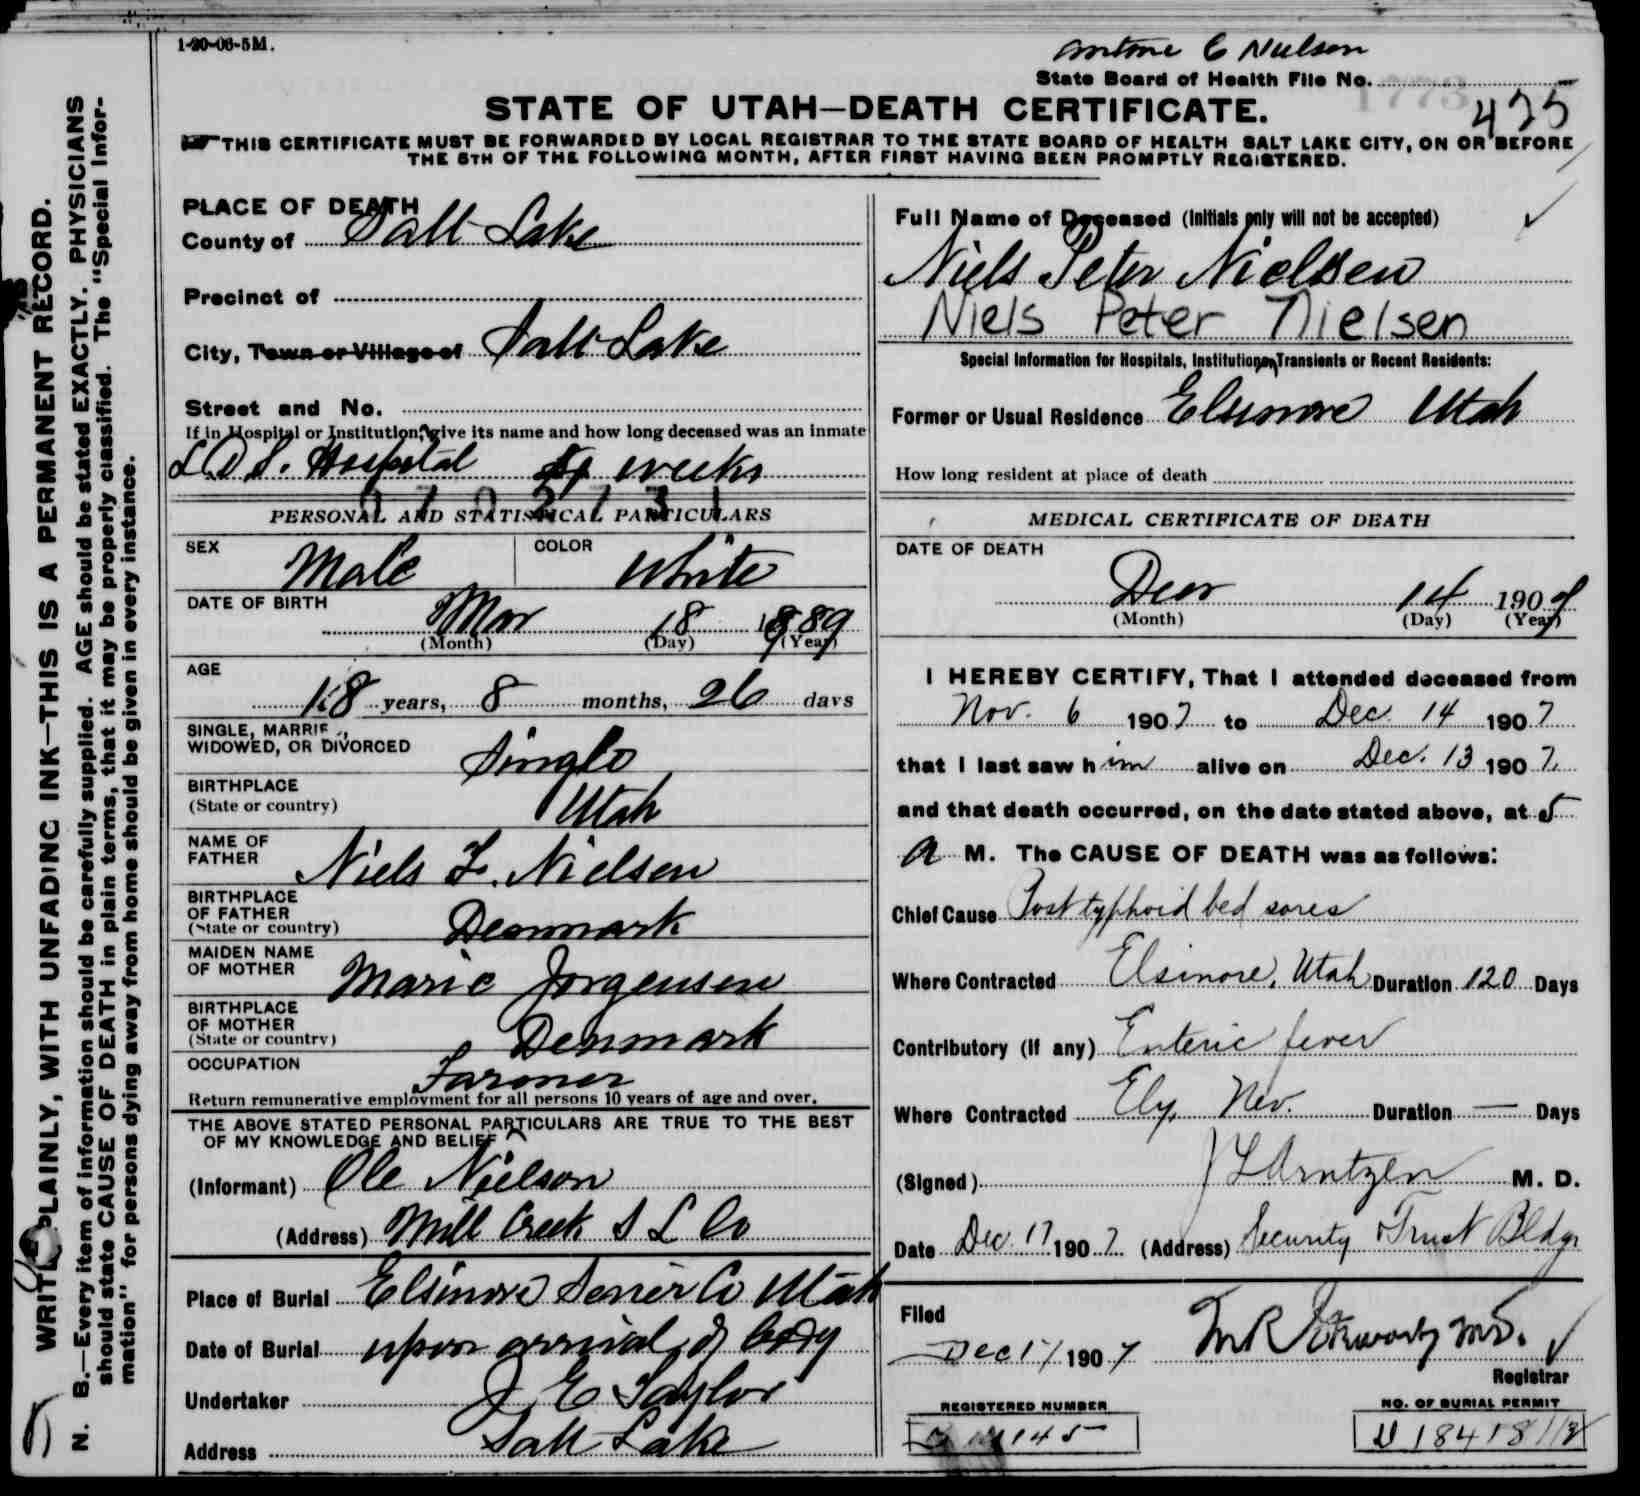 1-20-06-5M.
Antone C Nielson
State Board of Health File No.
425
STATE OF UTAH—DEATH CERTIFICATE.
THIS CERTIFICATE MUST BE FORWARDED BY LOCAL REGISTRAR TO THE STATE BOARD OF HEALTH SALT LAKE CITY, ON OR BEFORE
THE 5TH OF THE FOLLOWING MONTH, AFTER FIRST HAVING BEEN PROMPTLY REGISTERED.
WRITE PLAINLY, WITH UNFADING INK—THIS IS A PERMANENT RECORD.
N. B.—Every item of information should be carefully supplied. AGE should be stated EXACTLY. PHYSICIANS
should state CAUSE OF DEATH in plain terms, that it may be properly classified. The "Special Infor-
mation" for persons dying away from home should be given in every instance.
PLACE OF DEATH
County of Salt Lake
Precinct of
City, Town or Village of Salt Lake
Street and No.
If in Hospital or Institution, give its name and how long deceased was an inmate
L.D.S. Hospital weeks
PERSONAL AND STATISTICAL PARTICULARS
SEX Male COLOR White
DATE OF BIRTH Mar 18 1889
(Month) (Day) (Year)
AGE
18 years, 8 months, 26 days
SINGLE, MARRIED,
WIDOWED, OR DIVORCED Single
BIRTHPLACE
(State or country) Utah
NAME OF
FATHER Niels L. Nielsen
BIRTHPLACE
OF FATHER
(State or country) Denmark
MAIDEN NAME
OF MOTHER Marie Jorgensen
BIRTHPLACE
OF MOTHER
(State or country) Denmark
OCCUPATION Farmer
Return remunerative employment for all persons 10 years of age and over.
THE ABOVE STATED PERSONAL PARTICULARS ARE TRUE TO THE BEST
OF MY KNOWLEDGE AND BELIEF
(Informant) Ole Nielson
(Address) Mill Creek S L Co
Place of Burial Elsinore Sevier Co Utah
Date of Burial upon arrival of body
Undertaker J E Taylor
Address Salt Lake
Full Name of Deceased (Initials only will not be accepted)
Niels Peter Nielsen
Niels Peter Nielsen
Special Information for Hospitals, Institutions, Transients or Recent Residents:
Former or Usual Residence Elsinore Utah
How long resident at place of death
MEDICAL CERTIFICATE OF DEATH
DATE OF DEATH
Decr 14 1907
(Month) (Day) (Year)
I HEREBY CERTIFY, That I attended deceased from
Nov. 6 1907 to Dec. 14 1907
that I last saw him alive on Dec. 13 1907
and that death occurred, on the date stated above, at 5
a M. The CAUSE OF DEATH was as follows:
Chief Cause Post typhoid bed sores
Where Contracted Elsinore, Utah Duration 120 Days
Contributory (if any) Enteric fever
Where Contracted Ely, Nev. Duration — Days
(Signed) J L Arntzen M. D.
Date Dec. 17 1907 (Address) Security & Trust Bldg
Filed
Dec 17 1907 M.D.
Registrar
REGISTERED NUMBER
NO. OF BURIAL PERMIT